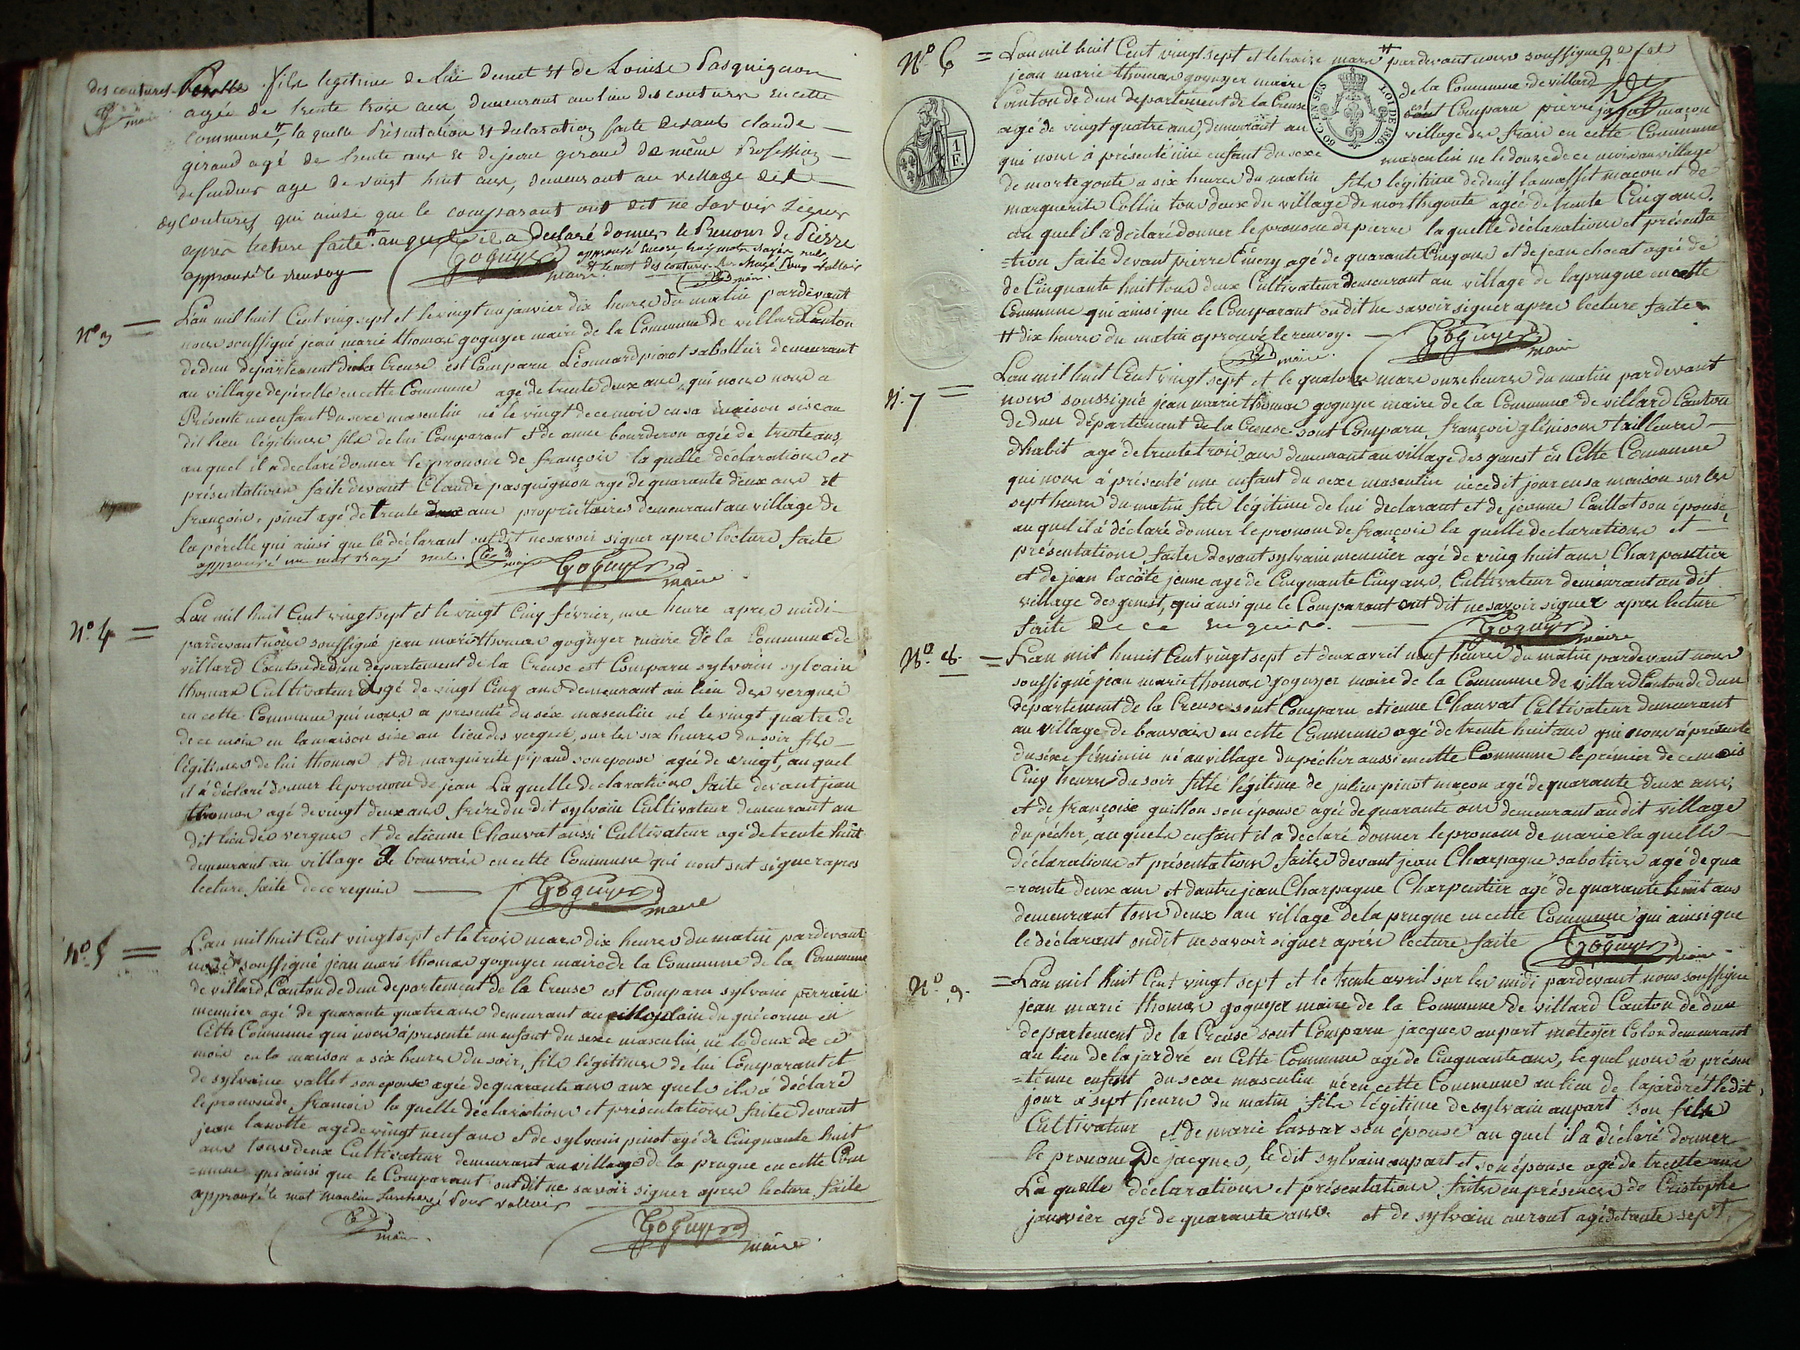 des coutures fils legitime de lui demet et de Louise Pasquignon
agée de trente trois ans demeurant au lieu des coutures en cette
commune, la quelle Présentation et declaration faite devant claude
giraud agé de trente ans et de pierre giraud de même Profession
age de vingt huit ans, demeurant au village des
coutures qui ainsi que le comparant ont dit ne savoir signer
après lecture faite au quel il a Declaré donner le Prenom de Pierre
approuvé le renvoy Goguyer maire
N° 3 = L'an mil huit Cent vingt sept et le vingt un janvier dix heures du matin pardevant
nous soussigné jean marie thomas goguyer maire de la Commune de villard Canton
de dun département de la Creuse est Comparu Léonard pinot sabottier demeurant
au village de pérelle en cette Commune agé de trente deux ans, qui nous a
Présenté un enfant du sexe masculin né le vingt de ce mois en sa maison sise au
dit lieu légitime fils de lui Comparant et de anne bourderon agée de trente ans
au quel il a déclaré donner le prenom de françois la quelle déclaration et
présentation faite devant Claude pasquignon agé de quarante deux ans et
françois pinot agé de trente ans propriétaires demeurant au village de
la pérelle qui ainsi que le déclarant ont dit ne savoir signer apres lecture faite
approuvé un mot rayé nul. Goguyer maire
N° 4 = L'an mil huit Cent vingt sept et le vingt Cinq février, une heure apres midi
pardevant nous soussigné jean marie thomas goguyer maire de la Commune de
villard Canton de dun département de la Creuse est Comparu sylvain sylvain
thomas Cultivateur agé de vingt Cinq ans demeurant au lieu des vergnes
en cette Commune qui nous a presenté du séxe masculin né le vingt quatre de
de ce mois en la maison sise au lieu des vergnes, sur les six heures du soir fils
légitimes de lui thomas et de marguerite pipaud son epouse agée de vingt, au quel
il a déclaré donner le prenom de jean La quelle declaration faite devant jean
thomas agé de vingt deux ans, frère du dit sylvain Cultivateur demeurant au
dit lieu des vergnes et de etienne Chauvat aussi Cultivateur agé de trente huit
demeurant au village de bauvais en cette Commune qui n'ont sut signer apres
lecture faite de ce requis Goguyer maire
N° 5 = L'an mil huit Cent vingt sept et le trois mars dix heures du matin pardevant
nous soussigné jean mari thomas goguyer maire de la Commune de la Commune
de villard Canton de dun departement de la Creuse est Comparu sylvain perrain
meunier agé de quarante quatre ans demeurant au moulain du guécornu en
Cette Commune qui nous a presenté un enfant du sexe masculin né le deux de ce
mois en la maison a six heures du soir, fils légitimes de lui Comparant et
de sylvaine vallet son epouse agée de quarante ans aux quels il a déclaré
le prenom de francois la quelle déclaration et présentation faite devant
jean lanotte agé de vingt neuf ans et de sylvain pinot agé de Cinquante huit
ans tous deux Cultivateur demeurant au village de la prugne en cette Com
=mune qui ainsi que le Comparant ont dit ne savoir signer apres lecture faite
approuvé le mot moulin surchargé Pour valloir
maire. Goguyer maire
N° 6 = L'an mil huit Cent vingt sept et le treize mars pardevant nous soussigné
jean marie thomas goguyer maire de la Commune de villard
Canton de dun departement de la Creuse est Comparu pierre maçon
agé de vingt quatre ans, demeurant au village des frais en cette Commune
qui nous à présenté un enfant du sexe masculin né le douze de ce mois au village
de mortegoute a six heures du matin fils légitime de denis lamasset macon et de
marguerite Collin tous deux du village de mortegoute agée de trente Cinq ans.
au quel il a déclaré donner le prenom de pierre la quelle déclaration et présenta
=tion faite devant pierre Emery agé de quarante Cinq ans et de jean chocat agé de
de Cinquante huit tous deux Cultivateur demeurant au village de laprugne en cette
Commune qui ainsi que le Comparant on dit ne savoir signer apres lecture faite
# dix heures du matin aprouvé le renvoy. Goguyer maire
maire.
N° 7 = L'an mil huit Cent vingt sept et le quatorze mars onze heures du matin pardevant
nous soussigné jean marie thomas goguyer maire de la Commune de villard Canton
de dun département de la Creuse sont Comparu françois glénison tailleurs
d'habit age de trente trois ans demeurant au village des genest en Cette Commune
qui nous à présenté une enfant du sexe masculin né ce dit jour en sa maison sur les
sept heures du matin fils légitime de lui declarant et de jeanne Caillat son épouse
au quel il a déclaré donner le prenom de françois la quelle declaration et
présentations faites devant sylvain meunier agé de ving huit ans Charpantier
et de jean lacôte jeune agé de Cinquante Cinq ans, Cultivateur demeurant au dit
village des genest, qui ausi que le Comparant ont dit ne savoir signer apres lecture
faite De ce requise. Goguyer maire
N° 8. = L'an mil huit Cent vingt sept et deux avril neuf heures du matin pardevant nous
soussigné jean marie thomas goguyer maire de la Commune de villard Canton de dun
département de la Creuse sont Comparu etienne Chauvat Cultivateur demeurant
au village de bauvais en cette Commune agé de trente huit ans qui nous à présenté
du séxe féminin né au village du pécher aussi en cette Commune le prémier de ce mois
Cinq heures du soir fille légitime de julien pinot maçon agé de quarante deux ans,
et de françoise guillon son épouse agée de quarante ans demeurant au dit village
du pécher, au quel enfant il a déclaré donner le prenom de marie la quelle
déclaration et présentation faites devant jean Charpagne sabotier agé de qua
=rante deux ans et d'autre jean Charpagne Charpentier agé de quarante huit ans
demeurant tous deux au village de la prugne en cette Commune qui ainsi que
le déclarant on dit ne savoir signer après lecture faite Goguyer maire
N° 9. = L'an mil huit Cent vingt sept et le trente avril sur les midi pardevant nous soussigné
jean marie thomas goguyer maire de la Commune de villard Canton de dun
departement de la Creuse sont Comparu jacques aupart métayer Colon demeurant
au lieu de la jardré en Cette Commune agé de Cinquante ans, le quel nous à présen
=té une enfant du sexe masculin né en cette Commune au lieu de lajardret le dit
jour a sept heures du matin fils légitime de sylvain aupart son fils
Cultivateur et de marie lassax son épouse au quel il a déclaré donner
le prenom De jacques, le dit sylvain aupart et son épouse agé de trente ans
La quelle déclarations et présentation faites en présence de Cristophe
janvier agé de quarante ans et de sylvain auront agé de trente sept